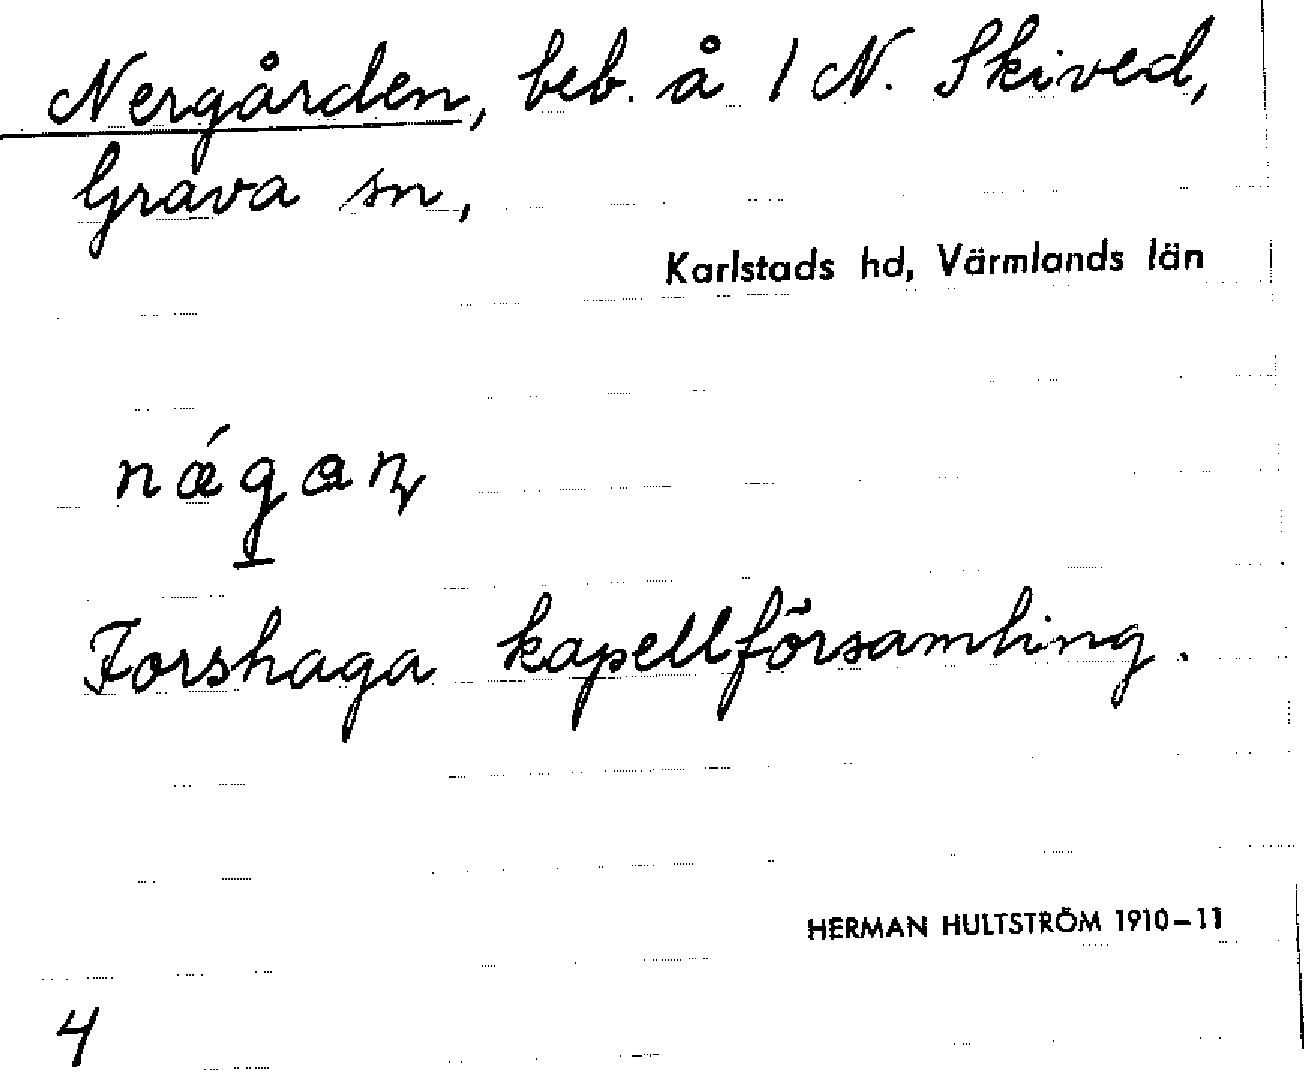 Nergården, beb. å 1 N. Skived,
Grava sn,
Karlstads hd, Värmlands län
nǽgaɳ
Forshaga kapellförsamling.
HERMAN HULTSTRÖM 1910–11
4